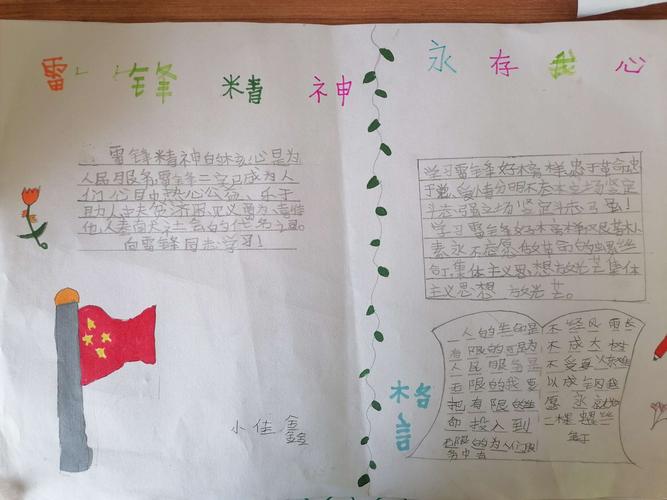 雷锋精神
永存我心
雷锋精神的核心是为
人民服务雷锋二字已成为人
们心目中热心公益、乐于
助人扶贫济困见义勇为善待
他人奉献社会的代名词。
向雷锋同志学习！
学习雷锋好榜样忠于革命忠
于党爱憎分明不忘本立场坚定
斗志强立场坚定斗志
学习雷锋好榜样
素永不
钉集体主义思想放光芒集体
主义思想放光芒。
格言
人的生命是
有限的可是为
人民服务是
无限的我要
把有限的生
命投入到
无限的为人们服
务中去
不经风雨长
不成大树
不受
以成钢我
愿永
螺丝
钉
小佳鑫